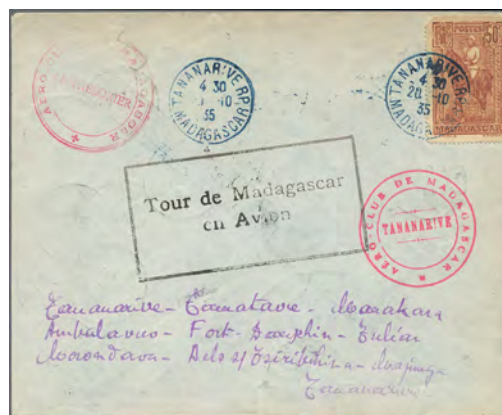 AÉRO-CLUB DE MADAGASCAR
TANANARIVE RP
4 30
10
35
MADAGASCAR
TANANARIVE RP
4 30
20 10
35
MADAGASCAR
POSTES
50
MADAGASCAR
Tour de Madagascar
en Avion
AÉRO-CLUB DE MADAGASCAR
TANANARIVE
Tananarive - Tamatave -
Fort-Dauphin - Tuléar
Morondava - s/ Tsiribihina - Majunga
Tananarive